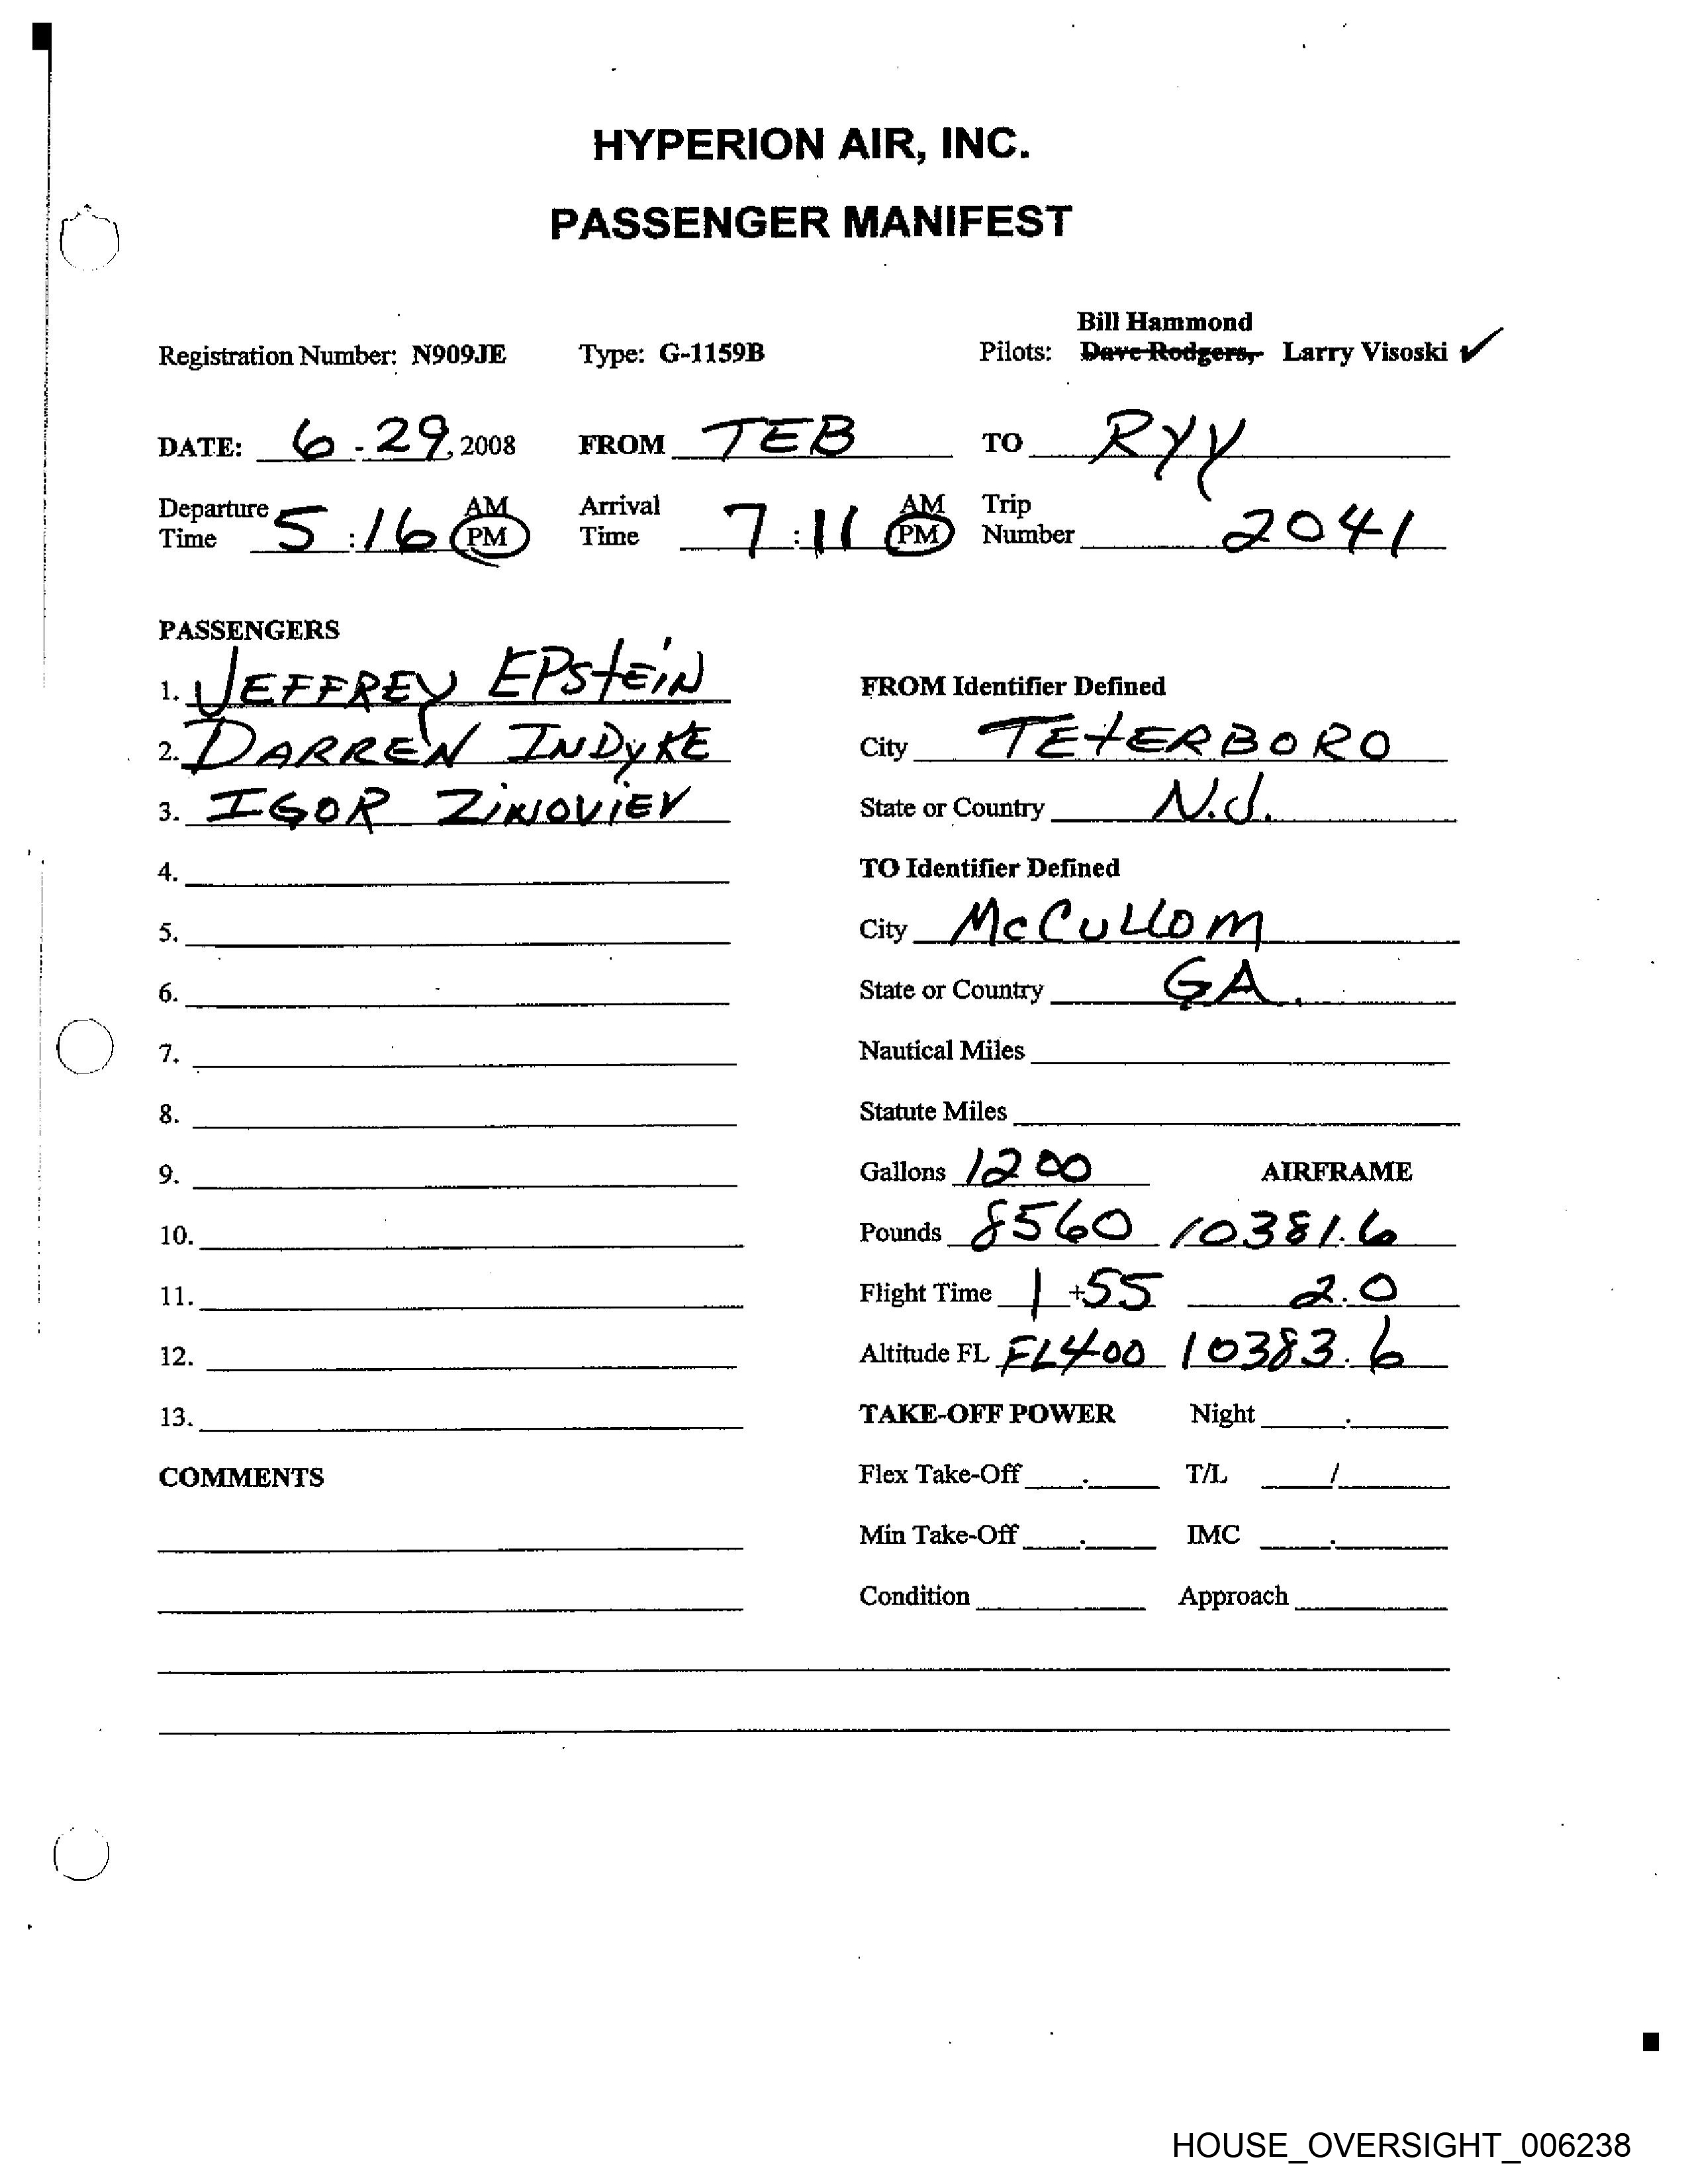 HYPERION AIR, INC.
PASSENGER MANIFEST
Bill Hammond
Registration Number: N909JE Type: G-1159B Pilots: Dave Rodgers, Larry Visoski ✓
DATE: 6-29, 2008 FROM TEB TO RYY
Departure Time 5:16 AM PM Arrival Time 7:11 AM PM Trip Number 2041
PASSENGERS
1. JEFFREY EPStEiN
2. DARREN INDyKE
3. IGOR ZiNOViEV
4.
5.
6.
7.
8.
9.
10.
11.
12.
13.
COMMENTS
FROM Identifier Defined
City TEtERBORO
State or Country N.J.
TO Identifier Defined
City McCuLLOM
State or Country GA.
Nautical Miles
Statute Miles
Gallons 1200 AIRFRAME
Pounds 8560 10381.6
Flight Time 1+55 2.0
Altitude FL FL400 10383.6
TAKE-OFF POWER Night .
Flex Take-Off . T/L /
Min Take-Off . IMC .
Condition Approach
HOUSE_OVERSIGHT_006238